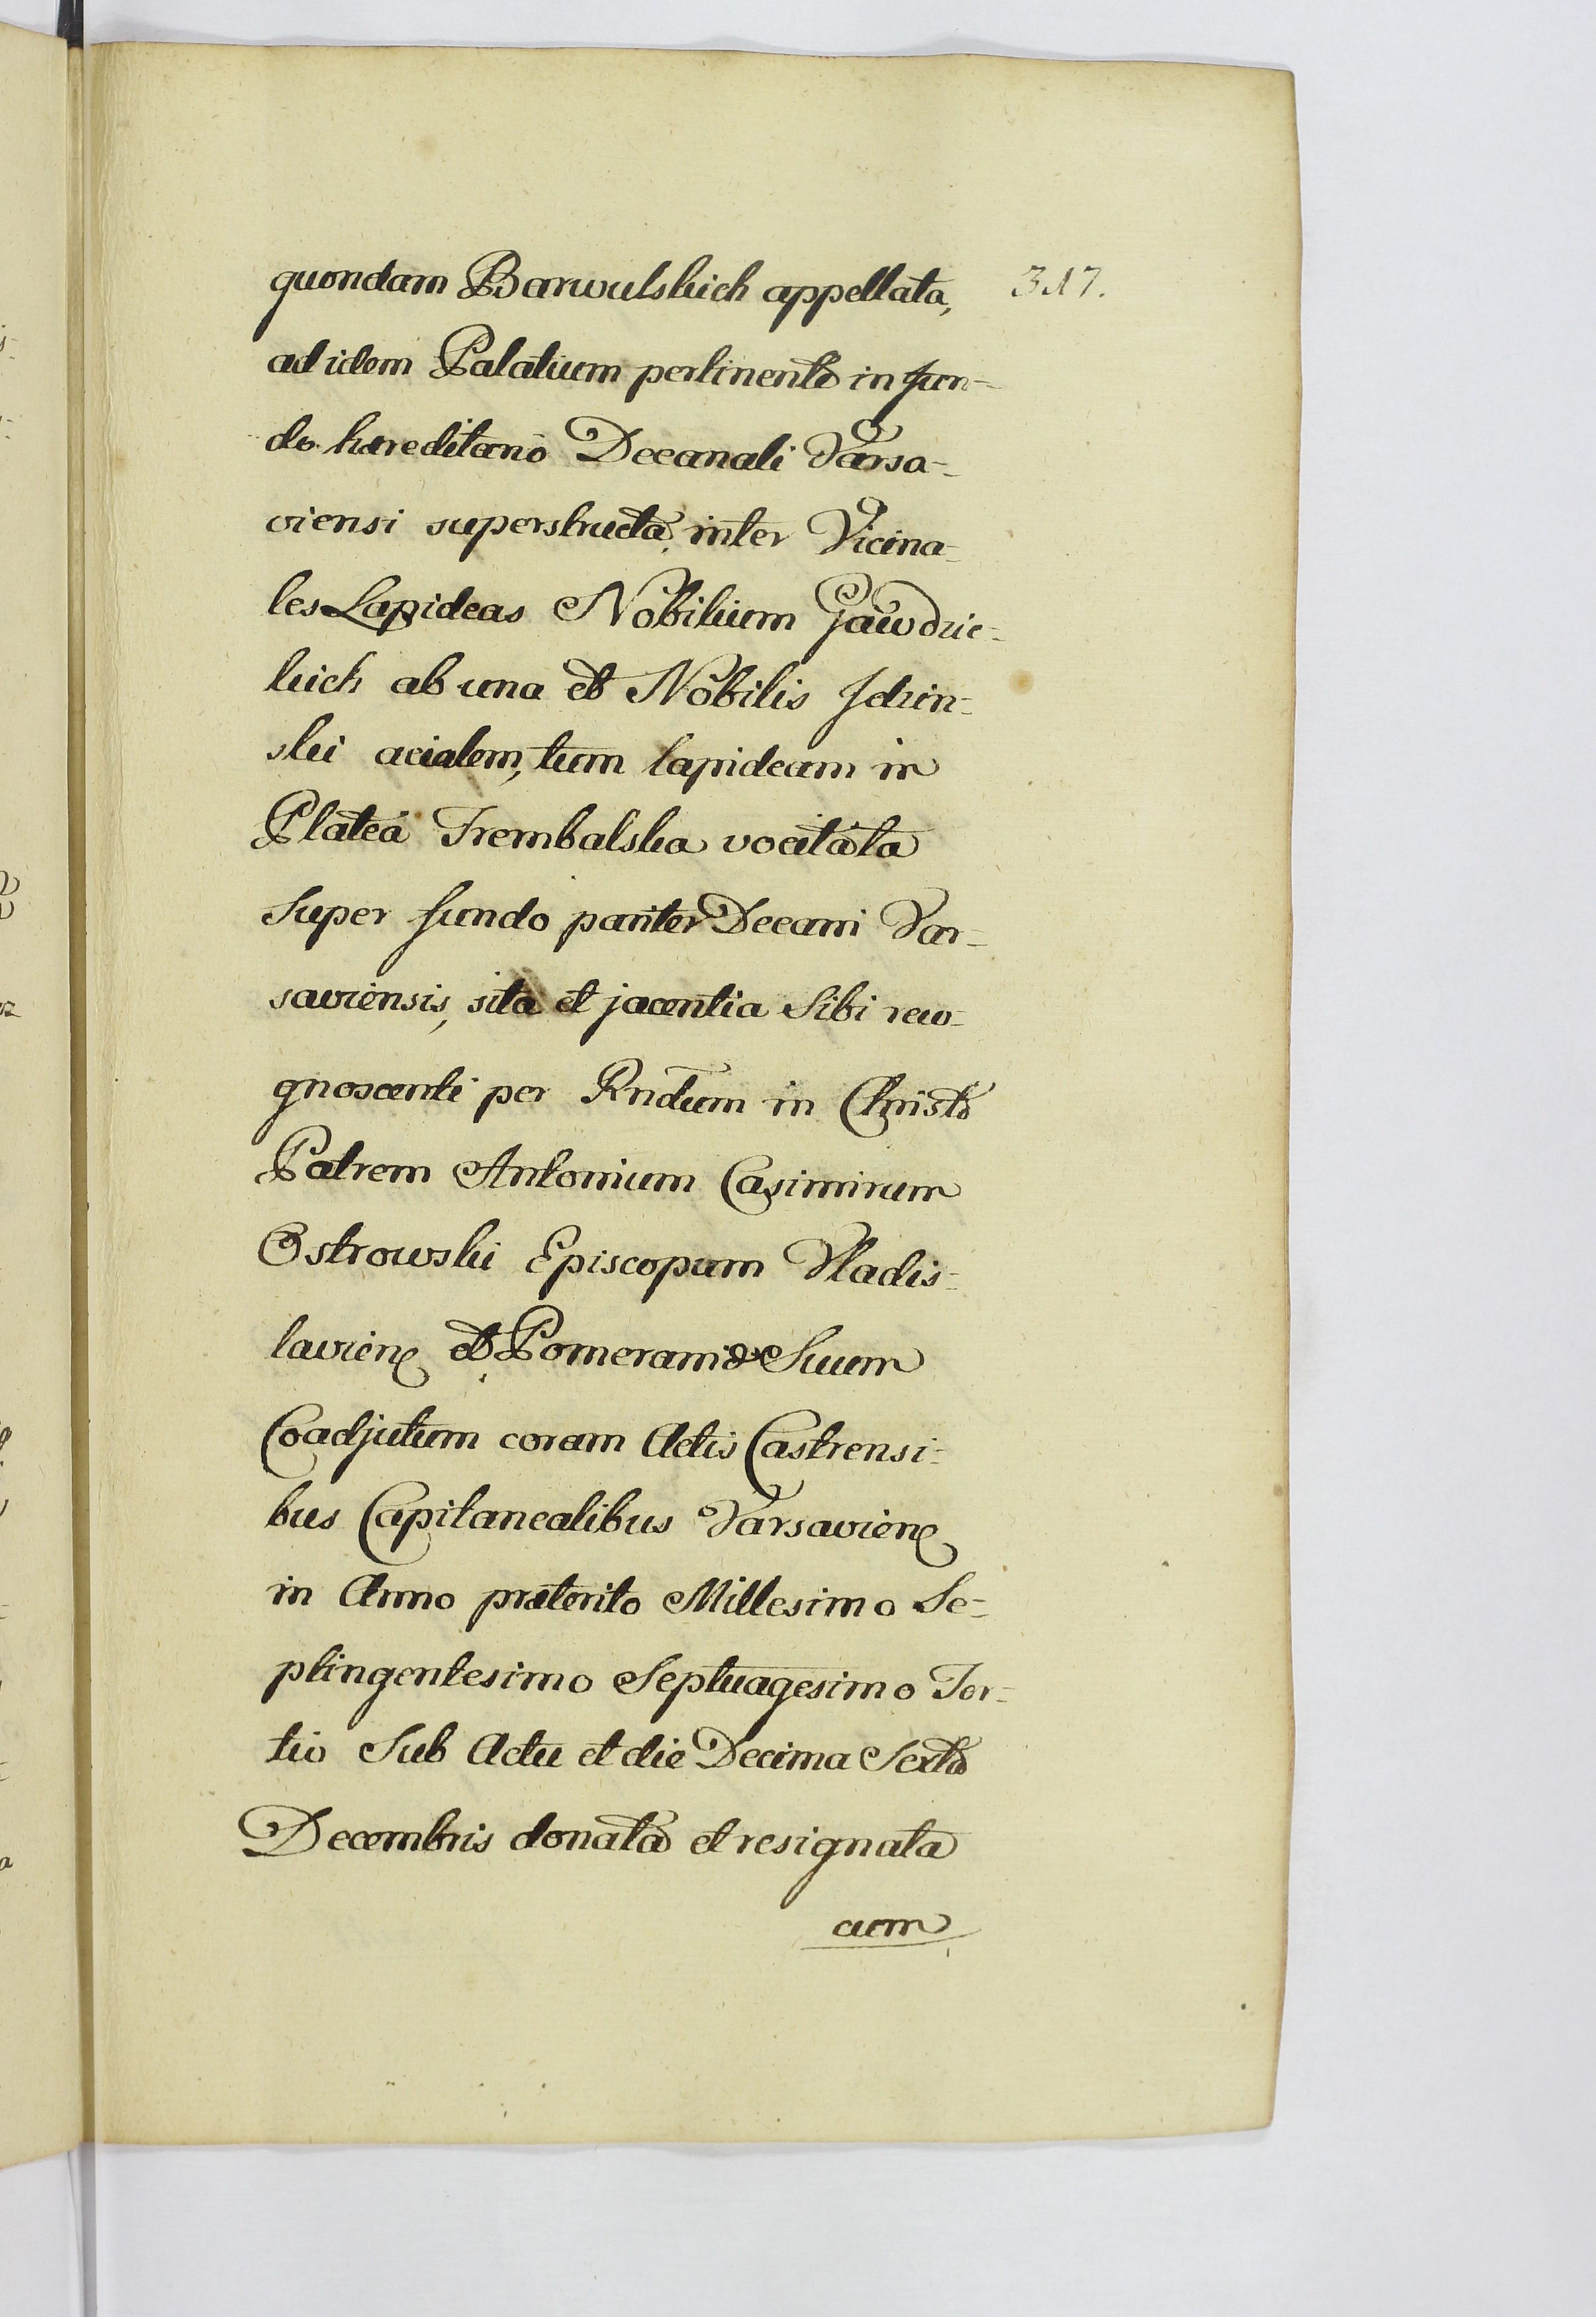 quondam Barwulskich appellata, 317.
ad idem Palatium pertinente in fun-
do hæreditario Decanali Varsa-
viensi superstructa, inter Vicina-
les Lapideas Nobilium Gawdzic-
kich ab una et Nobilis Idzin-
ski acialem, tum lapideam in
Platea Trembalska vocitata
super fundo pariter Decani Var-
saviensis, sita et jacentia Sibi reco-
gnoscenti per Rndum in Christo
Patrem Antonium Casimirum
Ostrowski Episcopum Vladis-
laviens et Pomeraniæ Suum
Coadjutum coram Actis Castrensi-
bus Capitanealibus Varsaviens
in Anno præterito Millesimo Se-
ptingentesimo Septuagesimo Ter-
tio Sub Actu et die Decima Sexta
Decembris donata et resignata
cum